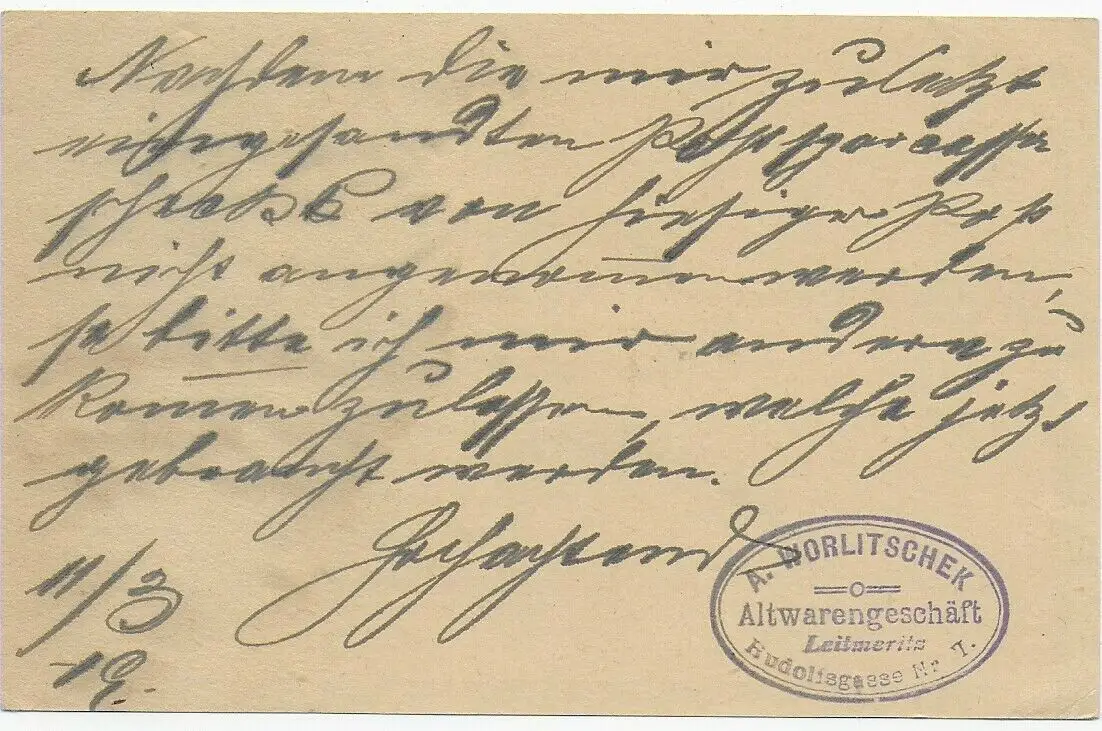 Nachdem die mir zuletzt
eingesandten Postsparcassa
schecks von hiesiger Post
nicht angenommen werden,
so bitte ich mir andere zu
komen zu lassen, welche jetzt
gebraucht werden.
Hochachtend
11/3
19.
A. WORLITSCHEK
Altwarengeschäft
Leitmeritz
Rudolfsgasse Nr. 7.